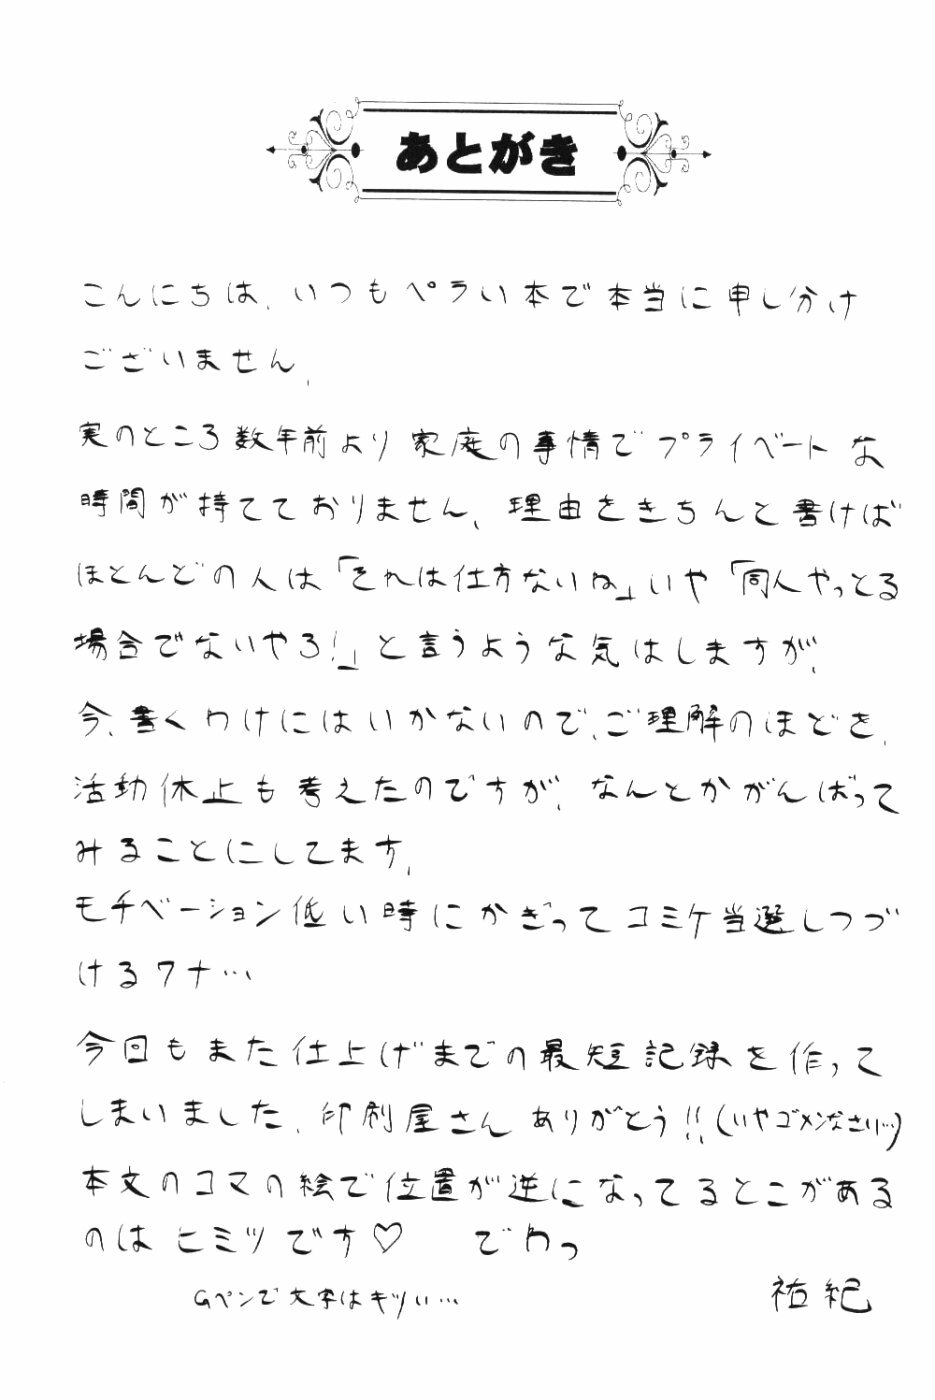 あとがき
こんにちは、いつもペラい本で本当に申し分け
ございません、
実のところ数年前より家庭の事情でプライベートな
時間が持てておりません、理由をきちんと書けば
ほとんどの人は「それは仕方ないね」いや「同人やっとる
場合でないやろ!」と言うような気はしますが、
今、書くわけにはいかないので、ご理解のほどを、
活動休止も考えたのですが、なんとかがんばって
みることにしてます、
モチベーション低い時にかぎってコミケ当選しつづ
けるワナ…
今回もまた仕上げまでの最短記録を作って
しまいました、印刷屋さんありがとう!!(いやゴメンなさい…)
本文のコマの絵で位置が逆になってるとこがある
のはヒミツです♡ でわっ
Gペンで文字はキツい… 祐紀